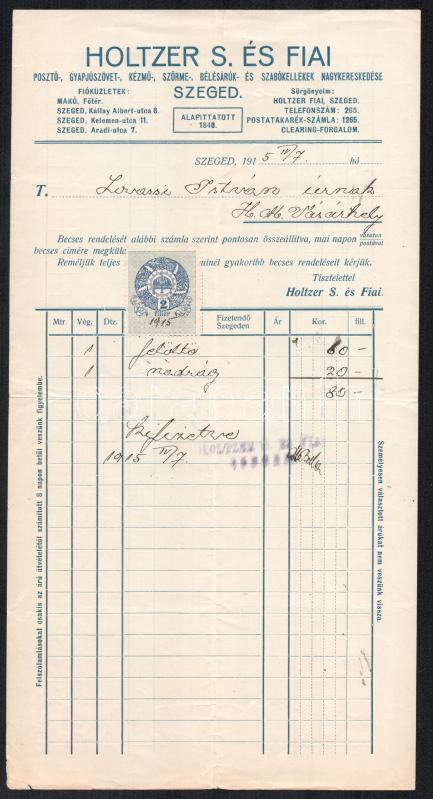 HOLTZER S. ÉS FIAI
POSZTÓ-, GYAPJÚSZÖVET-, KÉZMŰ-, SZŐRME-, BÉLÉSÁRÚK- ÉS SZABÓKELLÉKEK NAGYKERESKEDÉSE
SZEGED.
FIÓKÜZLETEK:
MAKÓ, Főtér.
SZEGED, Kállay Albert-utca 8.
SZEGED, Kelemen-utca 11.
SZEGED, Aradi-utca 7.
ALAPITTATOTT
1848.
Sürgönyeim:
HOLTZER FIAI, SZEGED.
TELEFONSZÁM: 265.
POSTATAKARÉK-SZÁMLA: 1265.
CLEARING-FORGALOM.
SZEGED, 1915 IV/7 hó
T. Lovassi István úrnak
H. M. Vásárhely
Becses rendelését alábbi számla szerint pontosan összeállítva, mai napon vasúton postával
becses címére megkül
Reméljük teljes minél gyakoribb becses rendeléseit kérjük.
Tisztelettel
Holtzer S. és Fiai.
2
fillér
1915
Mtr. Vég. Dtz. Fizetendő Szegeden Ár Kor. fill.
1 felöltő 60 –
1 nadrág 20 –
80 –
Kifizetve
1915 IV/7
Felszólamlásokat csakis az árú átvételétől számított 8 napon belül veszünk figyelembe.
Személyesen választott árúkat nem veszünk vissza.